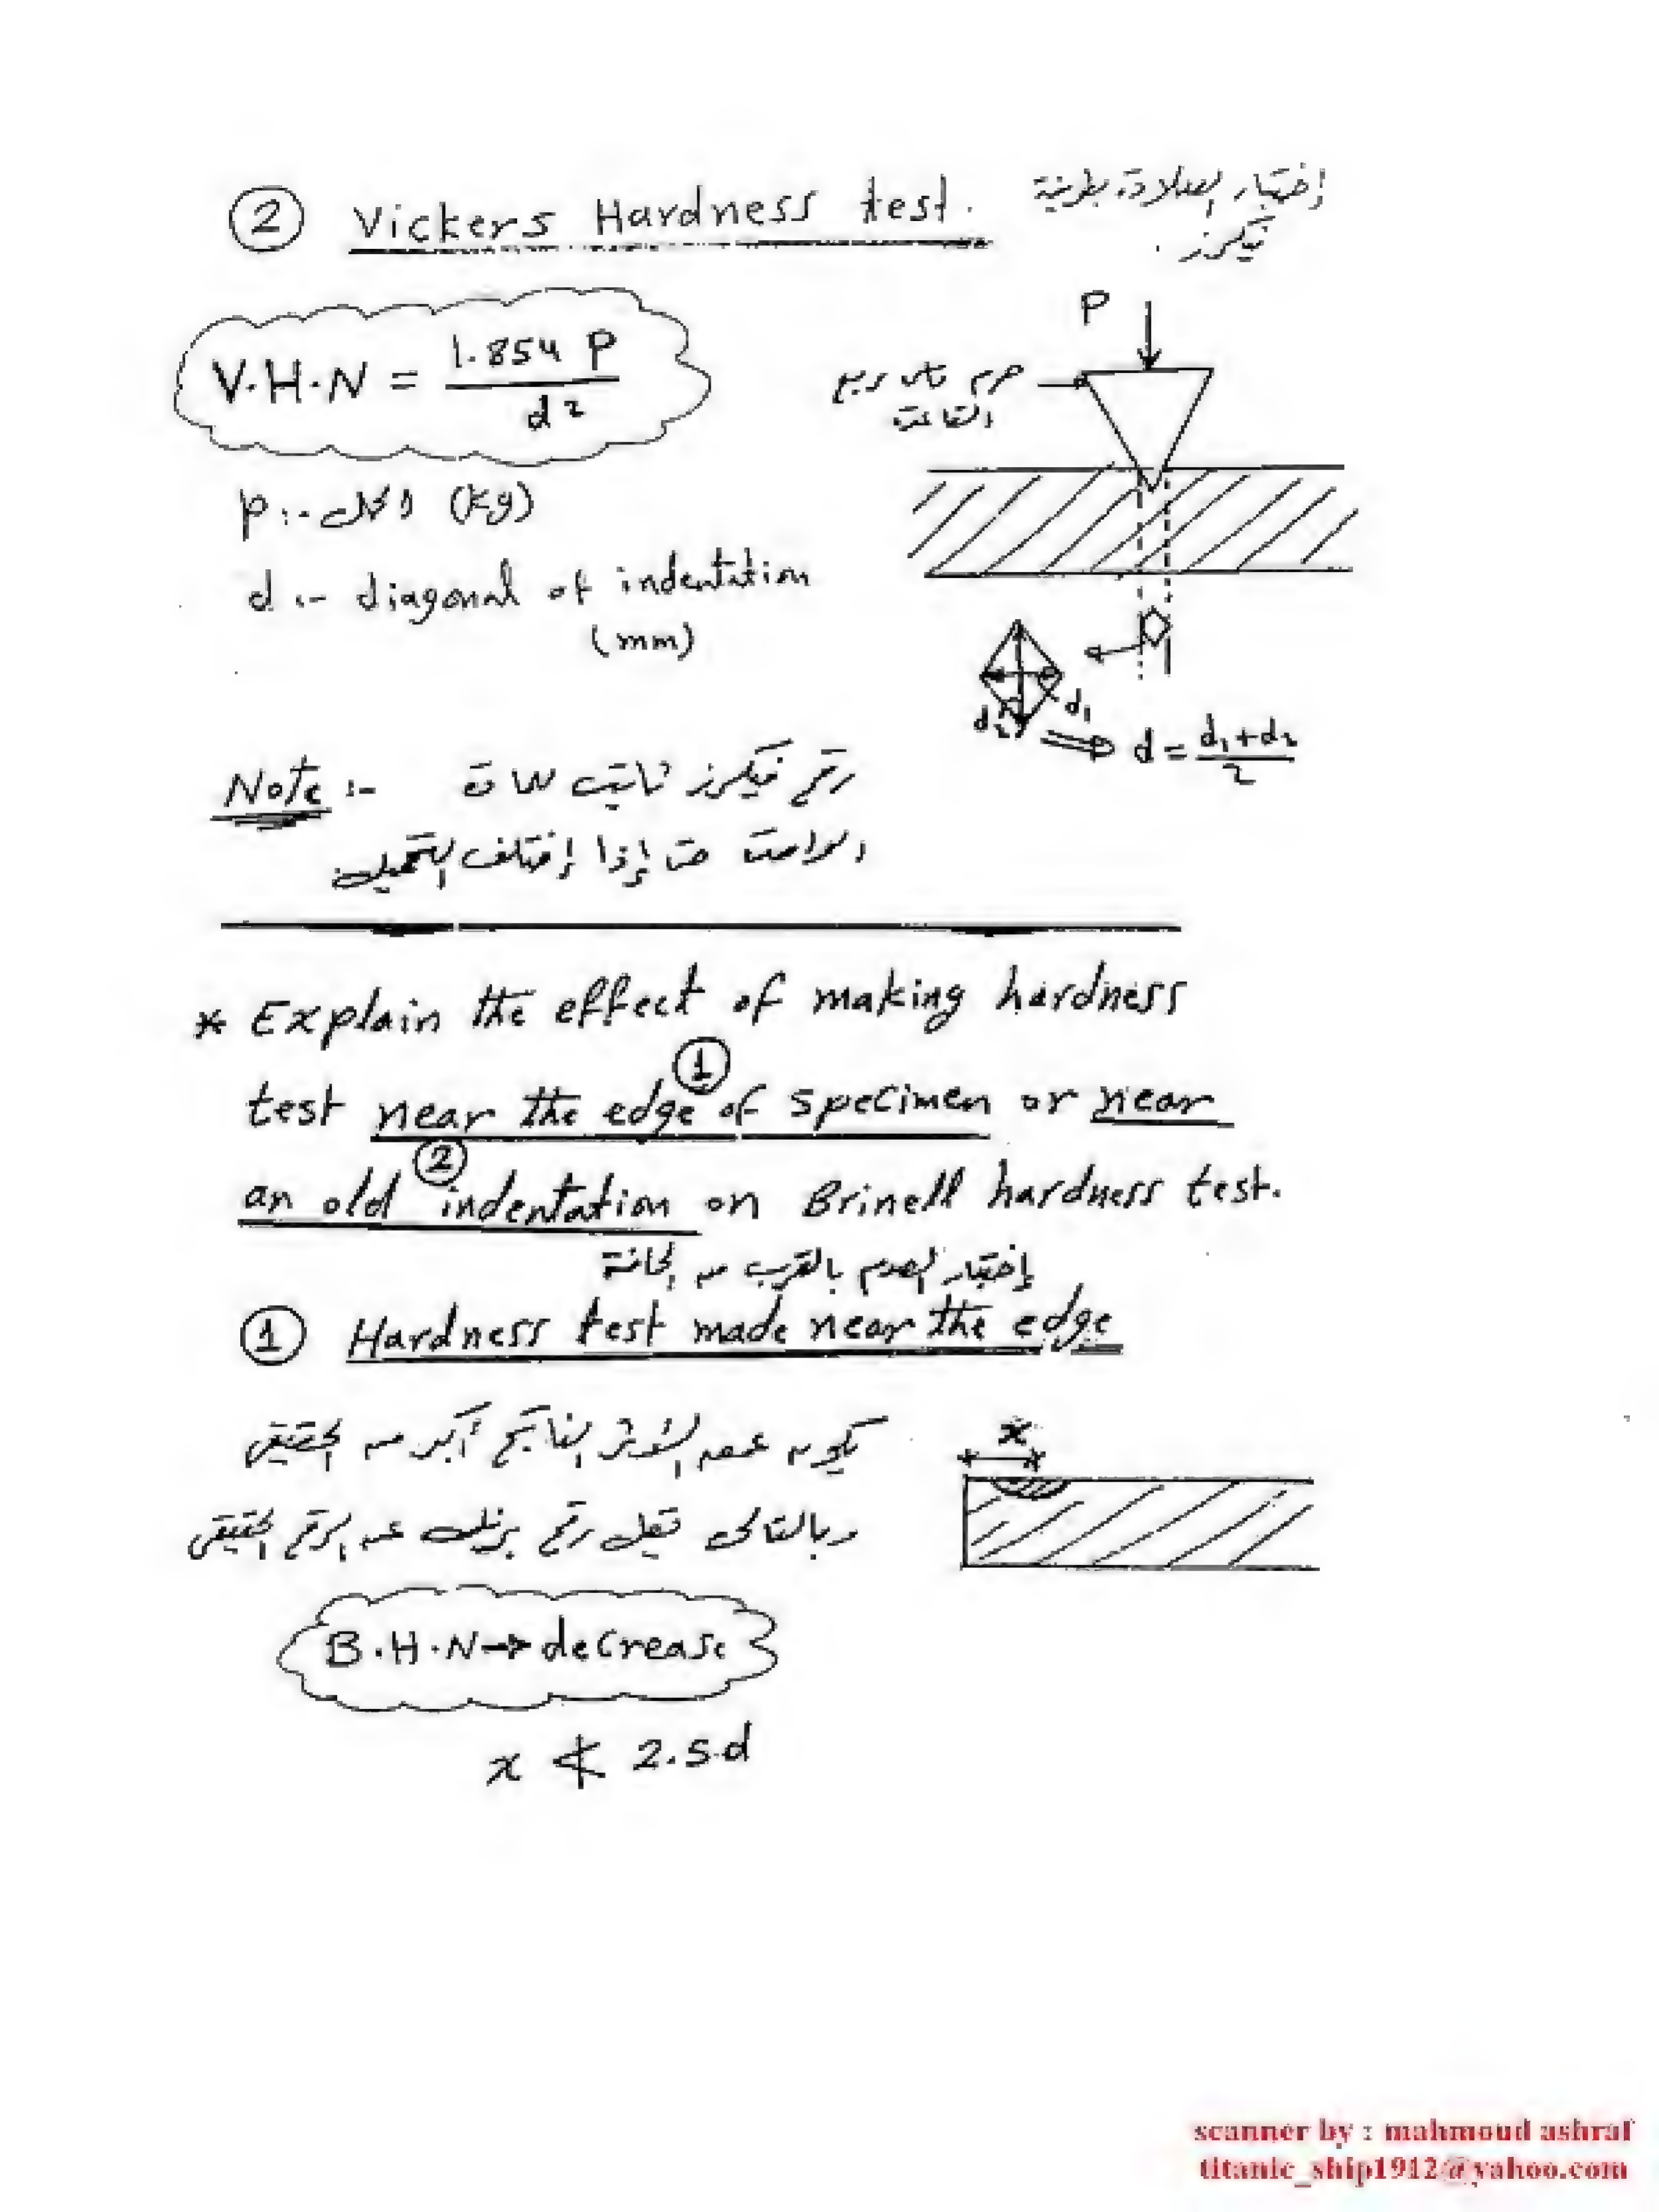 ② Vickers Hardness test.
إختبار الصلادة بطريقة
فيكرز.
V.H.N = 1.854 P / d²
P
هرم رباعى
القاعدة
P :- الحمل (kg)
d :- diagonal of indentation
(mm)
d₁
d₂
d = (d₁+d₂) / 2
Note :- رقم فيكرز ثابت للمادة
الواحدة حتى إذا إختلف التحميل
* Explain the effect of making hardness
test near the edge ① of specimen or near
an old ② indentation on Brinell hardness test.
إختبار بالقرب من الحافة
① Hardness test made near the edge
يكون عمق الأثر الناتج أكبر من الحقيقى
x
وبالتالى تقل رقم برنل عن الرقم الحقيقى
B.H.N → decrease
x ≮ 2.5 d
scanner by : mahmoud ashraf
titanic_ship1912@yahoo.com